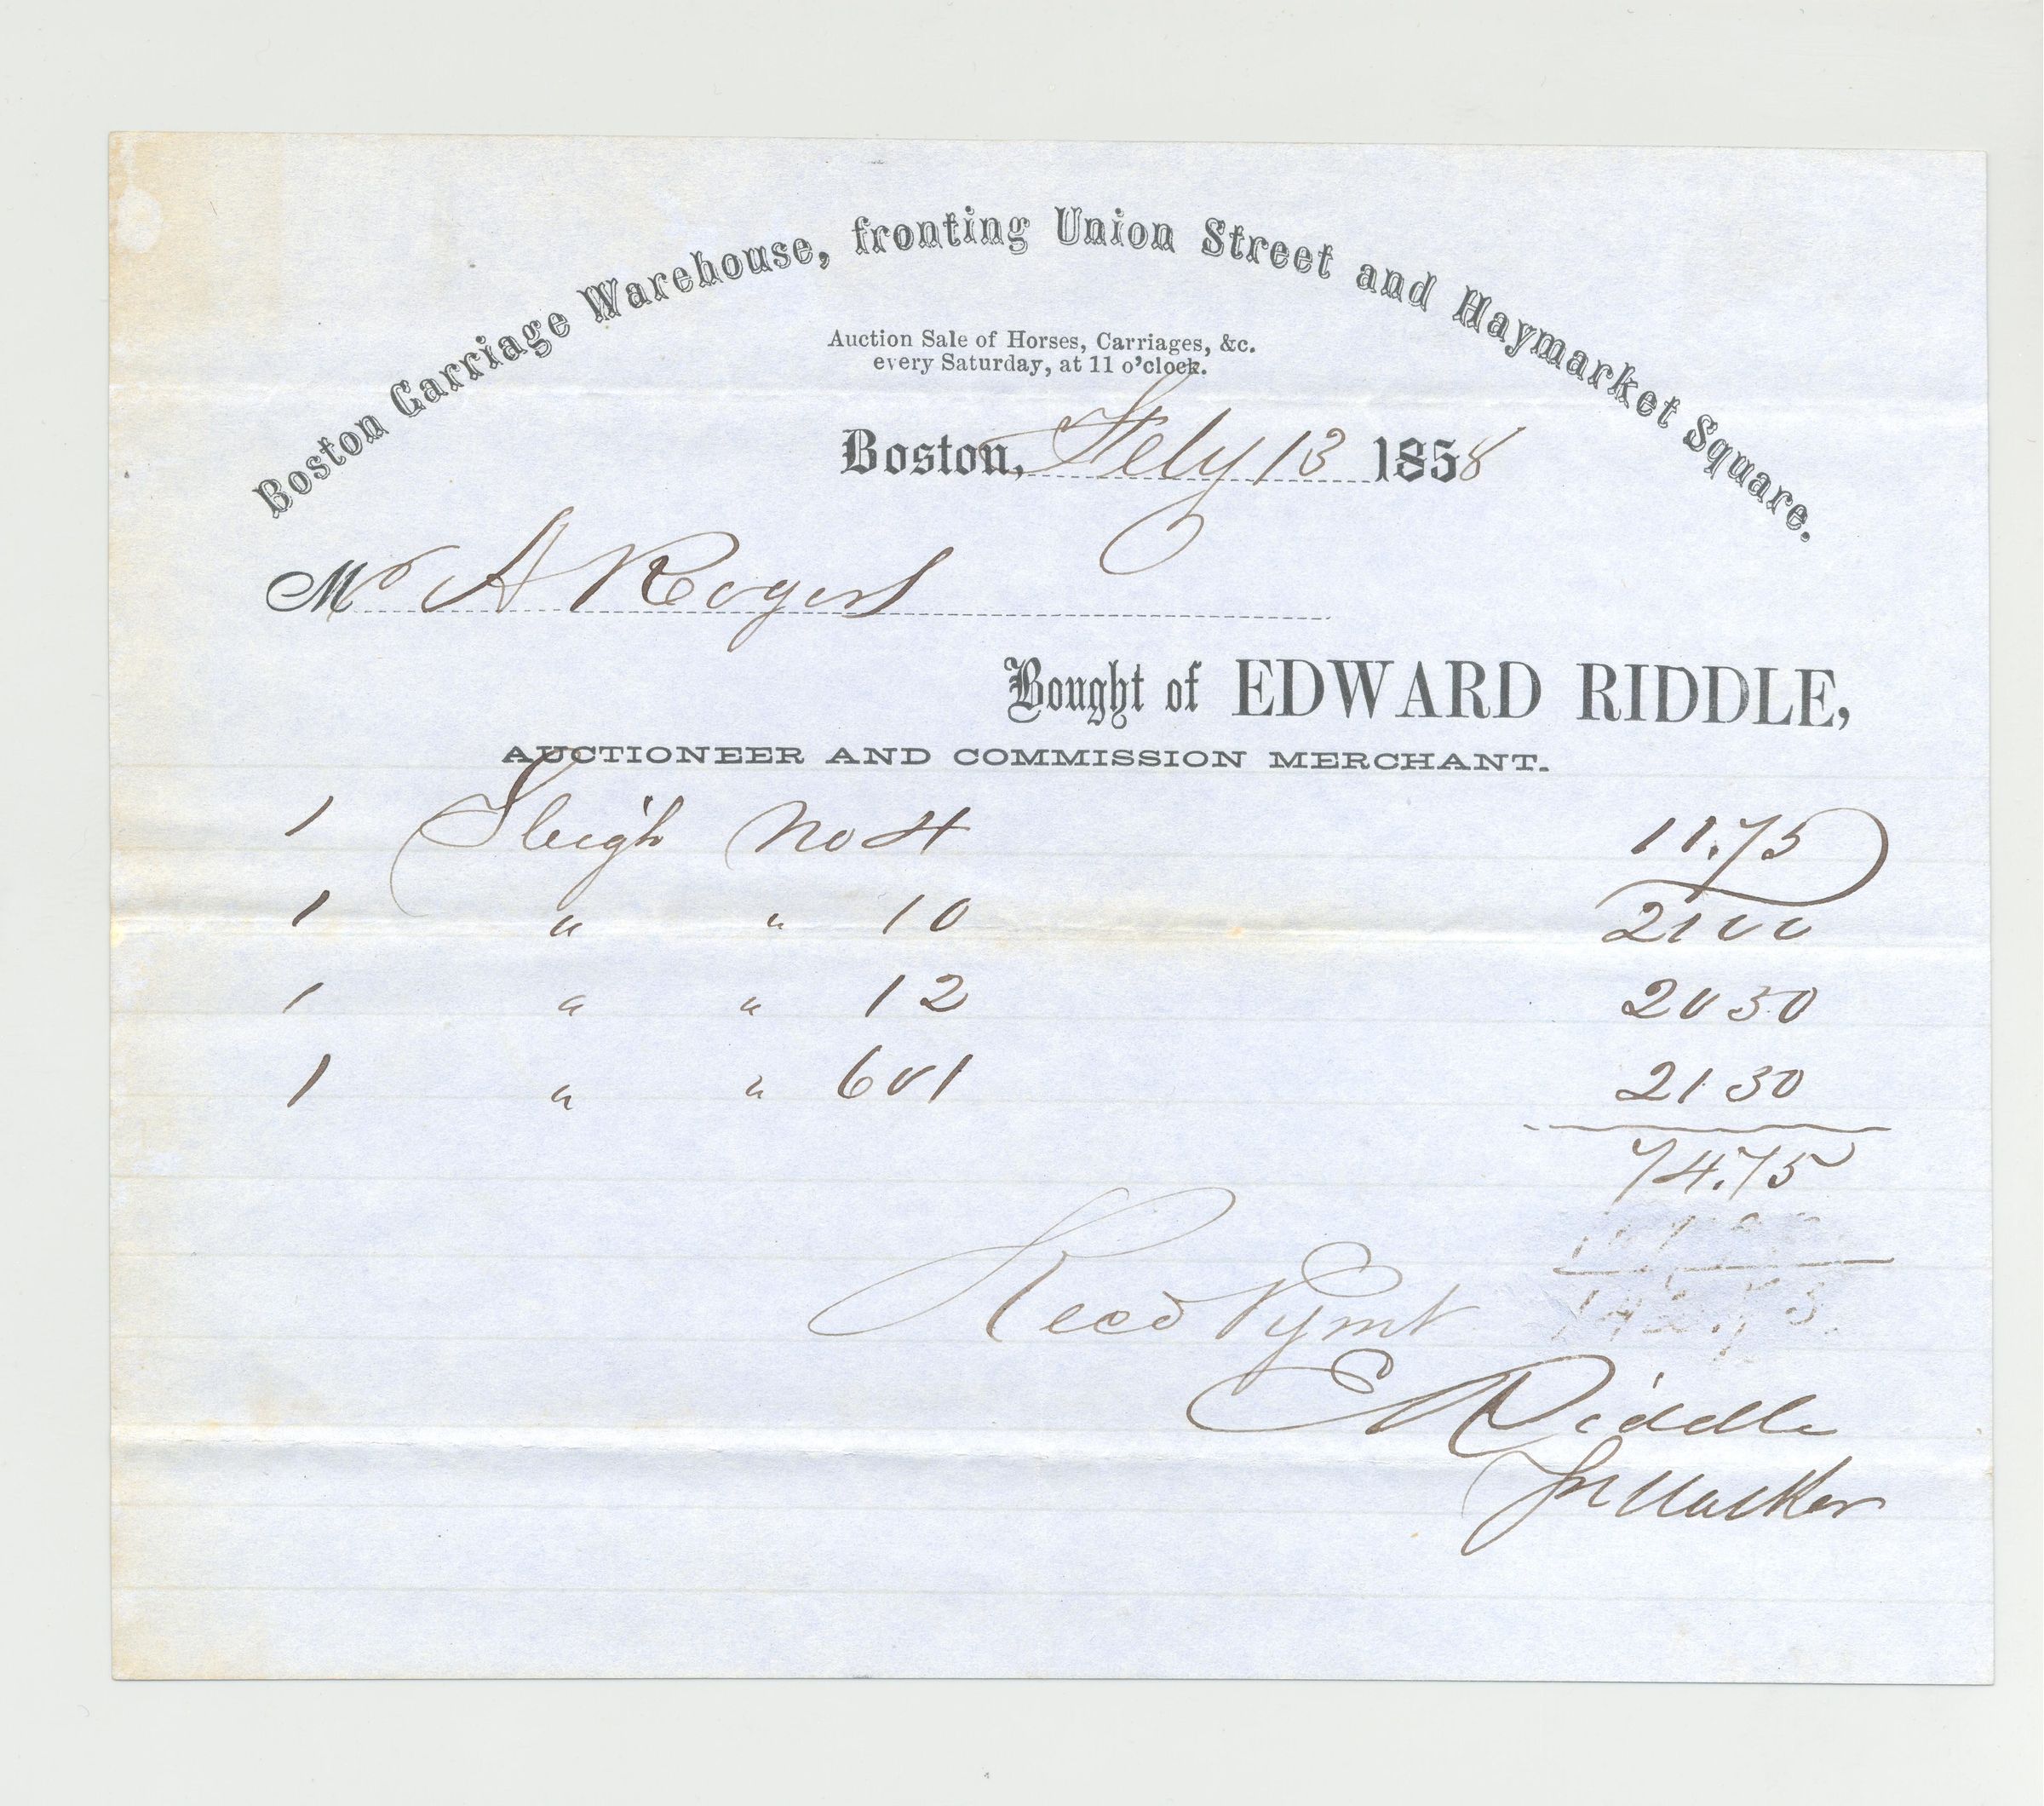 Boston Carriage Warehouse, fronting Union Street and Haymarket Square.
Auction Sale of Horses, Carriages, &c.
every Saturday, at 11 o'clock.
Boston, Feby 13 1858
Mr A Rogers
Bought of EDWARD RIDDLE,
AUCTIONEER AND COMMISSION MERCHANT.
1 Sleigh No 4 11.75
1 " " 10 21 00
1 " " 12 20 50
1 " " 601 21 50
74.75
Recd Pymt
E Riddle